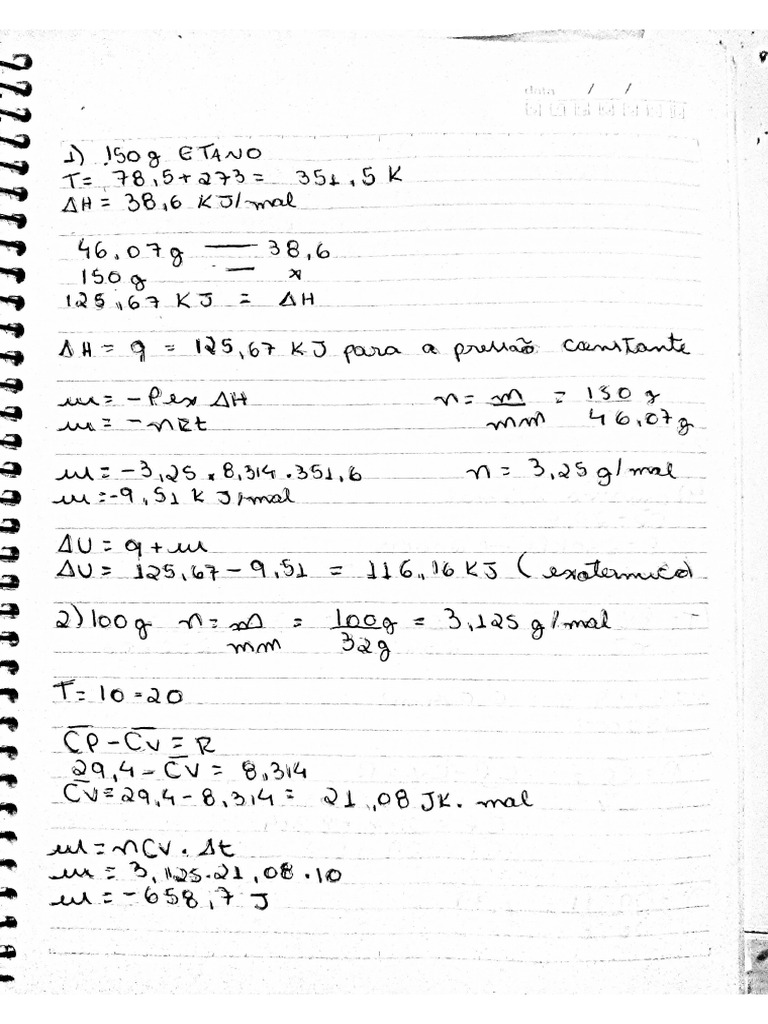 data / /
1) 150g ETANO
T= 78,5+273= 351,5 K
ΔH = 38,6 KJ/mol
46,07g — 38,6
150g — x
125,67 KJ = ΔH
ΔH = q = 125,67 KJ para a pressão constante
w = -Pex ΔH n = m/mm = 150g/46,07g
w = -nRt
w = -3,25 x 8,314 . 351,6 n = 3,25 g/mol
w = -9,51 KJ/mol
ΔU = q + w
ΔU = 125,67 - 9,51 = 116,16 KJ (exotermico)
2) 100g n = m/mm = 100g/32g = 3,125 g/mol
T= 10 = 20
C̅P - C̅v = R
29,4 - C̅v = 8,314
C̅v = 29,4 - 8,314 = 21,08 JK. mol
w = nCv . Δt
w = 3,125.21,08.10
w = -658,7 J